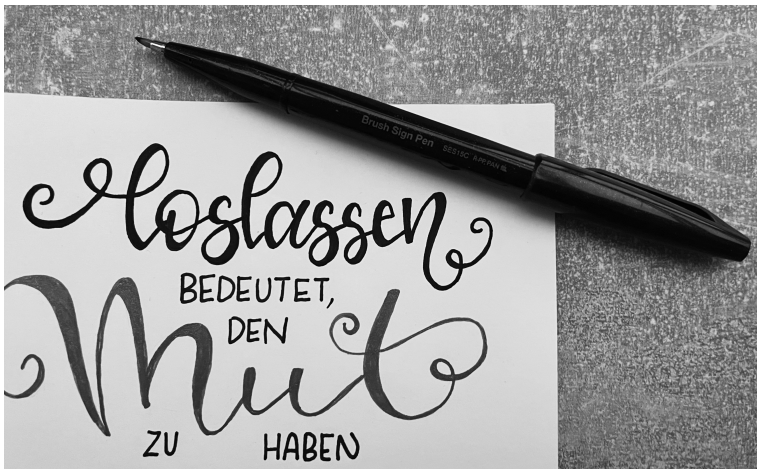 Brush Sign Pen SES15C JAPAN
loslassen
BEDEUTET,
DEN
Mut
ZU HABEN